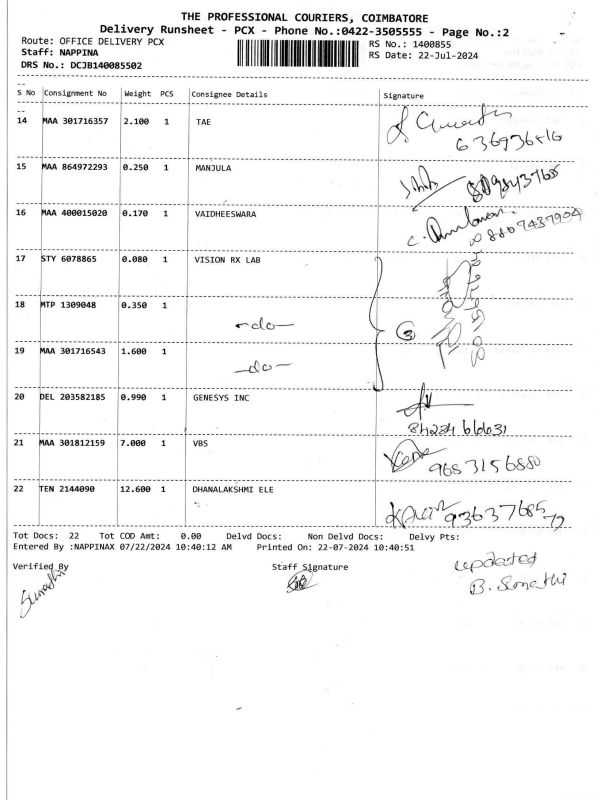 THE PROFESSIONAL COURIERS, COIMBATORE
Delivery Runsheet - PCX - Phone No.:0422-3505555 - Page No.:2
Route: OFFICE DELIVERY PCX RS No.: 1400855
Staff: NAPPINA RS Date: 22-Jul-2024
DRS No.: DCJB140085502
S No Consignment No Weight PCS Consignee Details Signature
14 MAA 301716357 2.100 1 TAE
15 MAA 864972293 0.250 1 MANJULA
16 MAA 400015020 0.170 1 VAIDHEESWARA
8807437904
17 STY 6078865 0.080 1 VISION RX LAB
18 MTP 1309048 0.350 1
-do- 3
19 MAA 301716543 1.600 1
-do-
20 DEL 203582185 0.990 1 GENESYS INC
21 MAA 301812159 7.000 1 VBS
9683156880
22 TEN 2144090 12.600 1 DHANALAKSHMI ELE
9363768579
Tot Docs: 22 Tot COD Amt: 0.00 Delvd Docs: Non Delvd Docs: Delvy Pts:
Entered By :NAPPINAX 07/22/2024 10:40:12 AM Printed On: 22-07-2024 10:40:51
Verified By Staff Signature updated
B. Sumathi
Sumathi